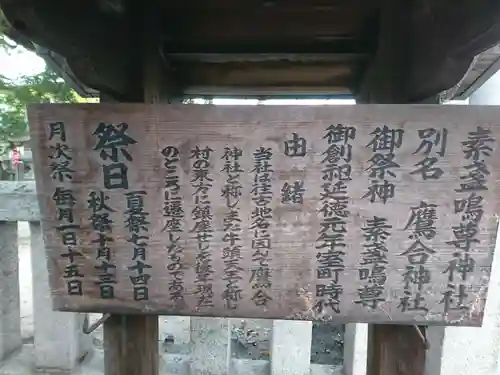 素盞嗚尊神社
別名 鷹合神社
御祭神 素盞嗚尊
御創祀延徳元年室町時代
由緒
当社は往古地名に因んで鷹合
神社と称しまた牛頭天王と称し
村の東方に鎮座せしを後に現在
のところに遷座したものである
祭日 夏祭七月十四日
秋祭十月十三日
月次祭 毎月一日十五日